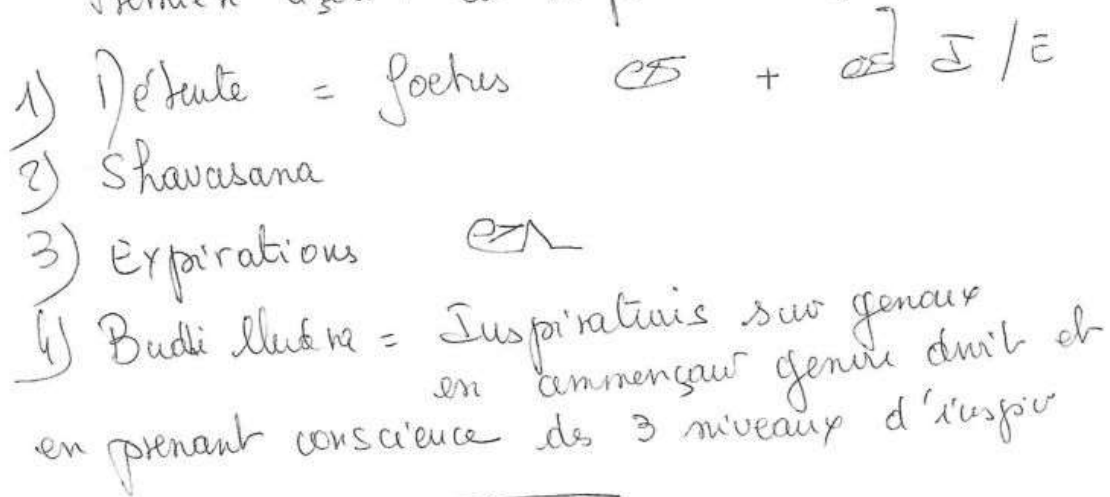 1) Détente = foetus + I/E
2) Shavasana
3) Expirations
4) Budi Mudra = Inspirations sur genoux
en commençant genou droit et
en prenant conscience des 3 niveaux d'inspir